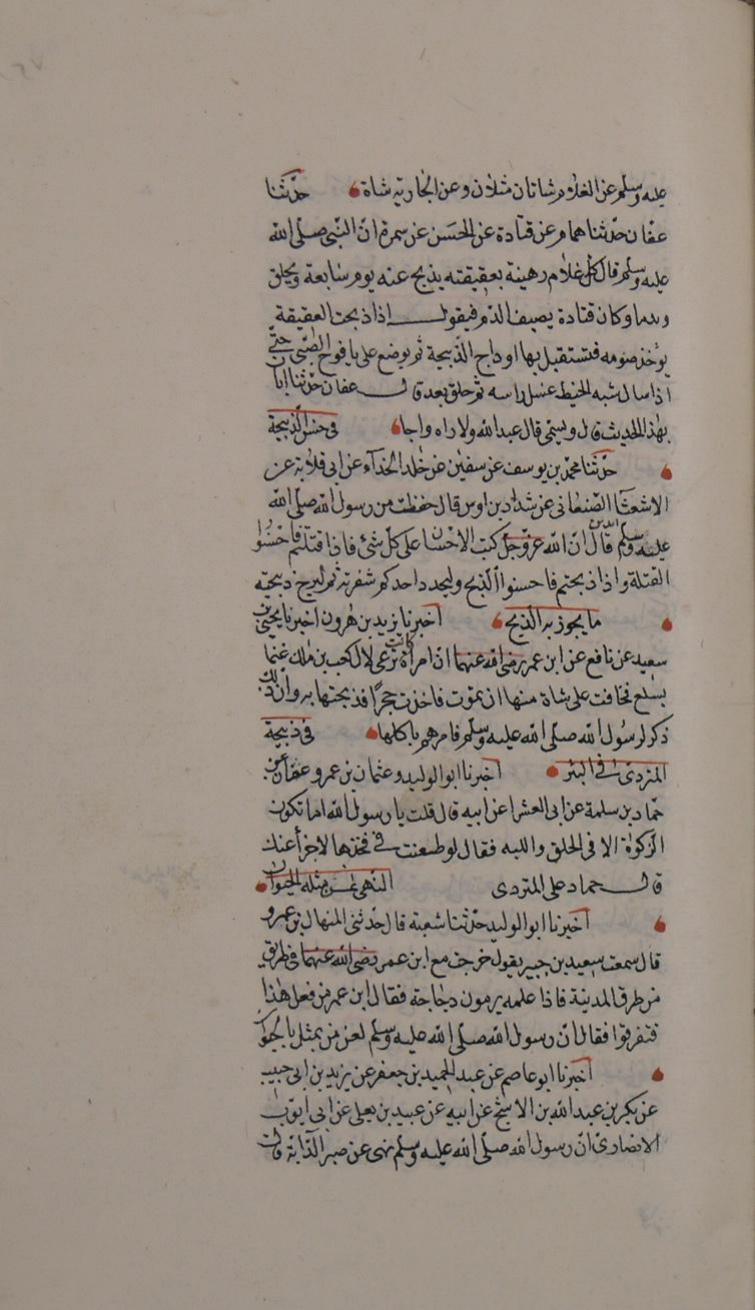 عليه وسلم عن الغلام شاتان مثلان وعن الجارية شاة حدثنا
عفان حدثنا همام عن قتادة عن الحسن عن سمرة ان النبي صلى الله
عليه وسلم قال كل غلام رهينة بعقيقته يذبح عنه يوم سابعة ويحلق
ويدما وكان قتادة يصيف الدم فيقول اذا ذبحت العقيقة
يؤخذ صومه فتستقبل بها اوداج الذبيحة ثم يوضع على يافوخ الصبي حتى
اذا سال شبه الخيط غسل راسه ثم حلق بعد قال عفان حدثنا ابان
بهذا الحديث قال ويسمى قال عبد الله ولا اراه واجبا في حسن الذبيحة
حدثنا محمد بن يوسف عن سفين عن خلد الحذآء عن ابي قلابة عن
الاشعث الصنعاني عن شداد بن اوس قال حفظت من رسول الله صلى الله
عليه وسلم اثنين قال ان الله عز وجل كتب الاحسان على كل شئ فاذا قتلتم فاحسنوا
القتلة واذا ذبحتم فاحسنوا الذبح وليحد احدكم شفرته ثم ليرح ذبيحته
ما يجوز به الذبح اخبرنا يزيد بن هرون اخبرنا يحيى بن
سعيد عن نافع عن ابن عمر رضي الله عنهما ان امراة كانت ترعى لال كعب بن ملك غنما
بسلع فخافت على شاة منها ان تموت فاخذت حجرا فذبحتها به وان ذلك
ذكر لرسول الله صلى الله عليه وسلم فامرهم باكلها في ذبيحة
المتردى في البئر اخبرنا ابو الوليد وعثمان بن عمر وعفان عن
حماد بن سلمة عن ابي العشرا عن ابيه قال قلت يا رسول الله اما تكون
الزكوة الا في الحلق واللبه فقال لو طعنت في فخذها لاجزأ عنك
قال حماد على المتردى النهي عن مثله الحيوان
اخبرنا ابو الوليد حدثنا شعبة قال حدثني المنهال بن عمرو
قال سمعت سعيد بن جبير يقول خرجت مع ابن عمر رضي الله عنهما في طريق
من طرق المدينة فاذا غلمه يرمون دجاجة فقال ابن عمر من فعل هذا
فتفرقوا فقال ان رسول الله صلى الله عليه وسلم لعن من يمثل بالحيوان
اخبرنا ابو عاصم عن عبد الحميد بن جعفر عن يزيد بن ابي حبيب
عن بكير بن عبد الله بن الاشج عن ابيه عن عبيد بن يعلى عن ابي ايوب
الانصارى ان رسول الله صلى الله عليه وسلم نهى عن صبر الدابة قال